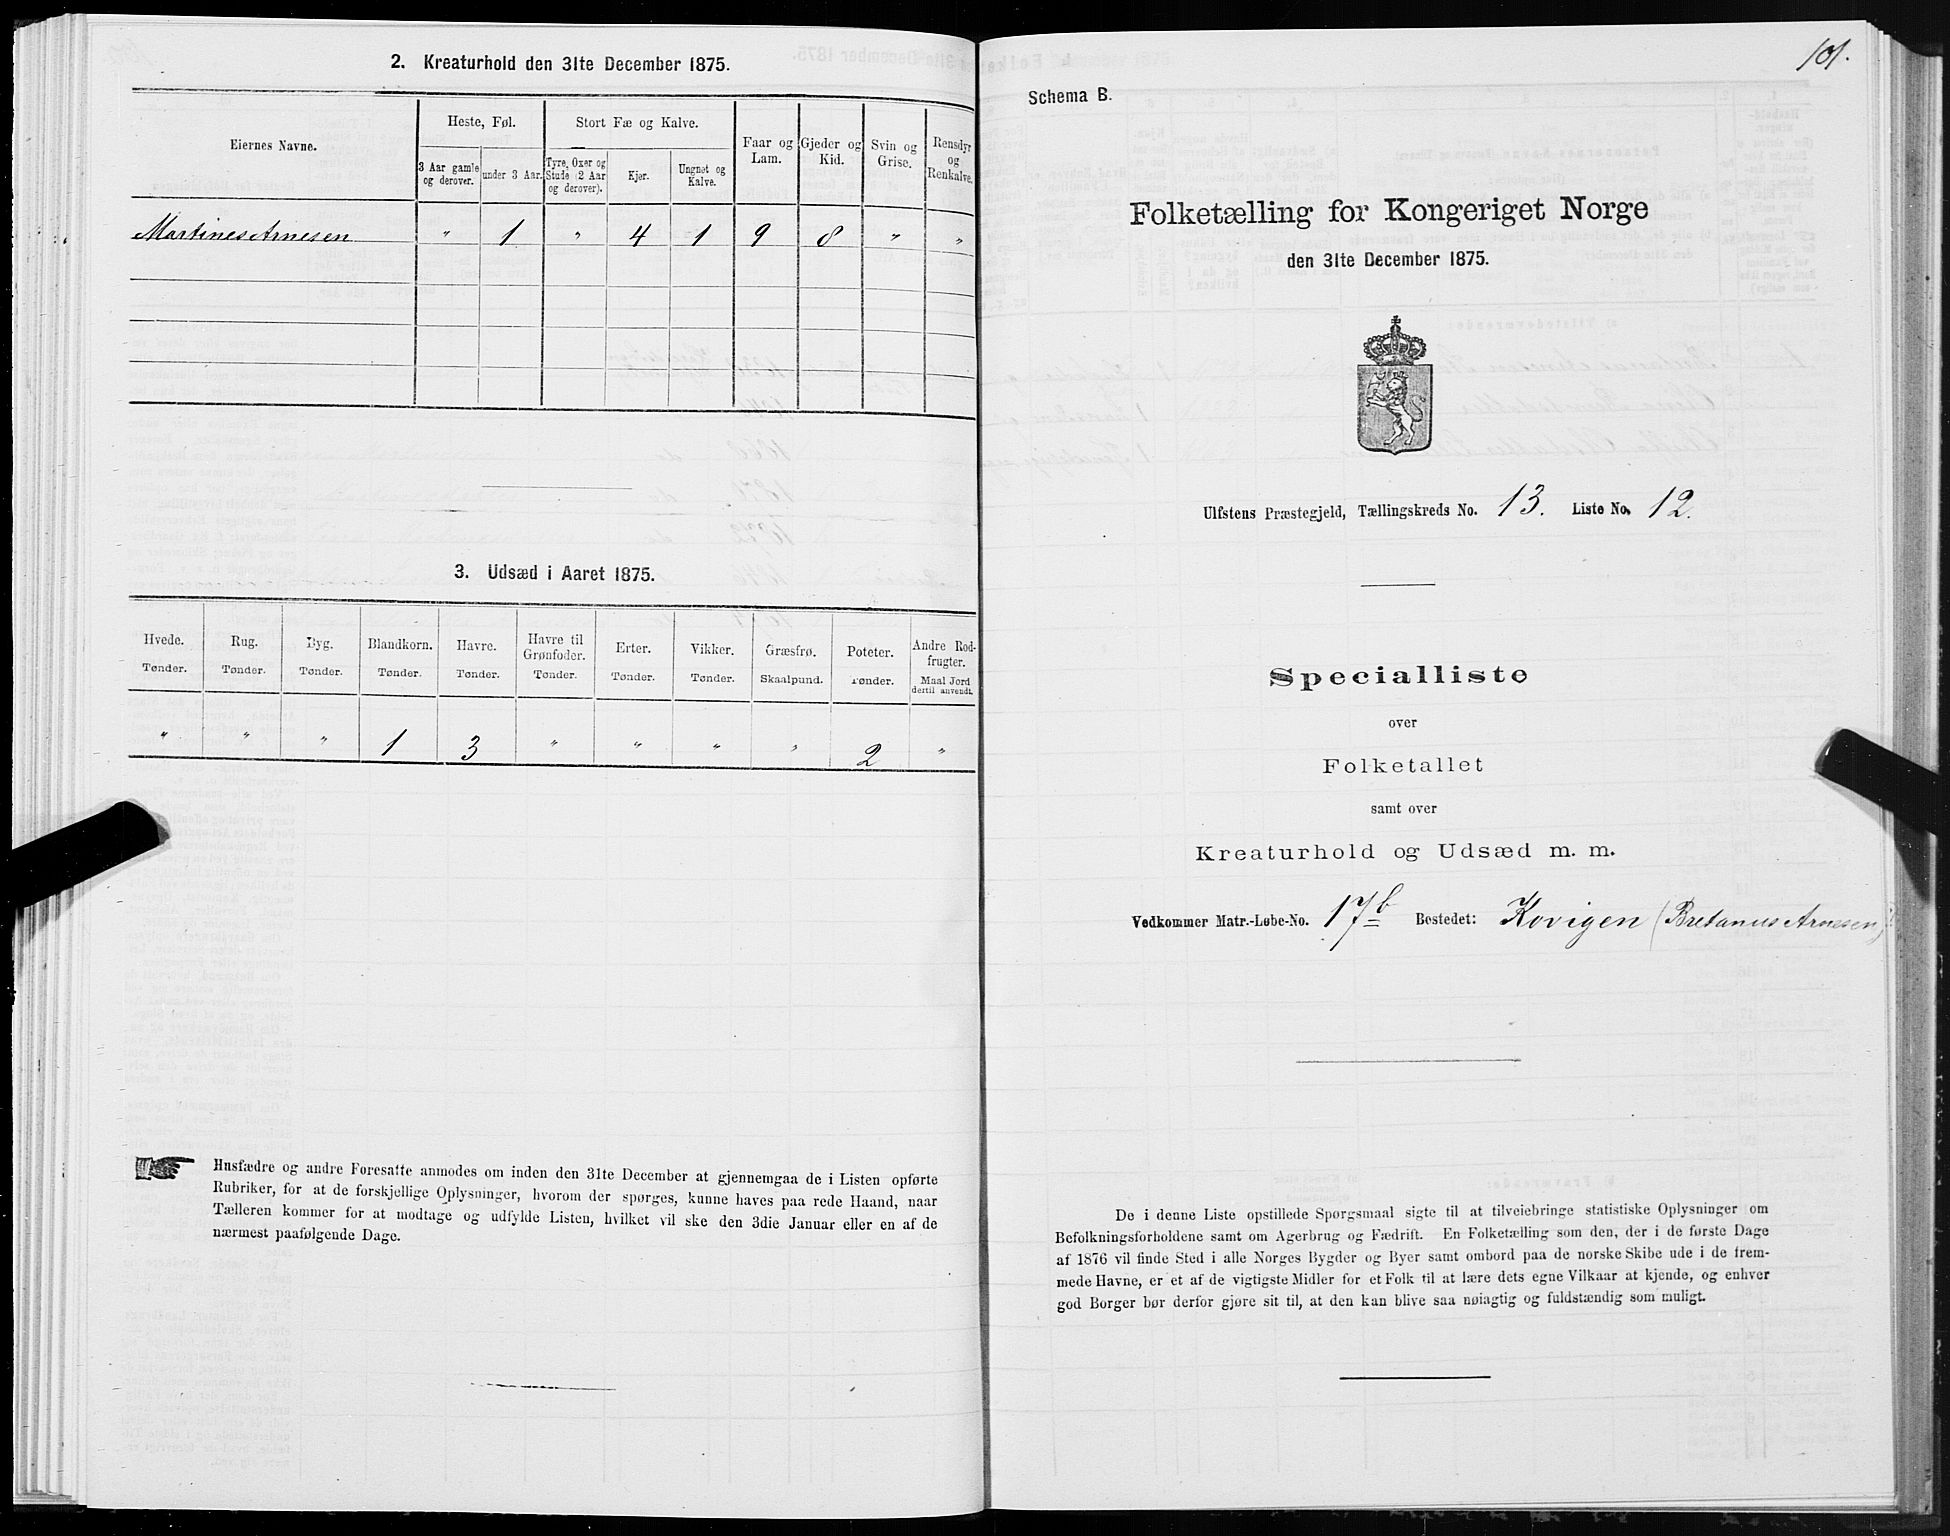 2. Kreaturhold den 31te December 1875.
Eiernes Navne.
Heste, Føl.
Stort Fæ og Kalve.
Faar og Lam.
Gjeder og Kid.
Svin og Grise.
Rensdyr og Renkalve.
3 Aar gamle og derover.
under 3 Aar.
Tyre, Oxer og Stude (2 Aar og derover).
Kjør.
Ungnøt og Kalve.
Martines Arnesen " 1 " 4 1 9 8 " "
3. Udsæd i Aaret 1875.
Hvede. Rug. Byg. Blandkorn. Havre. Havre til Grønfoder. Erter. Vikker. Græsfrø. Poteter. Andre Rodfrugter.
Tønder. Tønder. Tønder. Tønder. Tønder. Tønder. Tønder. Tønder. Skaalpund. Tønder. Maal Jord dertil anvendt.
" " " 1 3 " " " " 2 "
Husfædre og andre Foresatte anmodes om inden den 31te December at gjennemgaa de i Listen opførte
Rubriker, for at de forskjellige Oplysninger, hvorom der spørges, kunne haves paa rede Haand, naar
Tælleren kommer for at modtage og udfylde Listen, hvilket vil ske den 3die Januar eller en af de
nærmest paafølgende Dage.
101.
Schema B.
Folketælling for Kongeriget Norge
den 31te December 1875.
Ulfstens Præstegjeld, Tællingskreds No. 13. Liste No. 12.
Specialliste
over
Folketallet
samt over
Kreaturhold og Udsæd m. m.
Vedkommer Matr.-Løbe-No. 17b Bostedet: Kovigen (Bretanus Arnesen)
De i denne Liste opstillede Spørgsmaal sigte til at tilveiebringe statistiske Oplysninger om
Befolkningsforholdene samt om Agerbrug og Fædrift. En Folketælling som den, der i de første Dage
af 1876 vil finde Sted i alle Norges Bygder og Byer samt ombord paa de norske Skibe ude i de frem-
mede Havne, er et af de vigtigste Midler for et Folk til at lære dets egne Vilkaar at kjende, og enhver
god Borger bør derfor gjøre sit til, at den kan blive saa nøiagtig og fuldstændig som muligt.